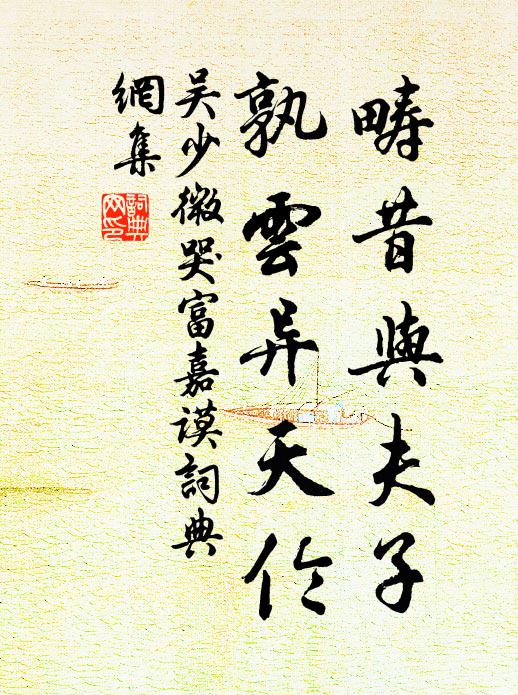 畴昔與夫子
孰雲异天伦
吴少微哭富嘉谟詞典
網集
詞典
网印